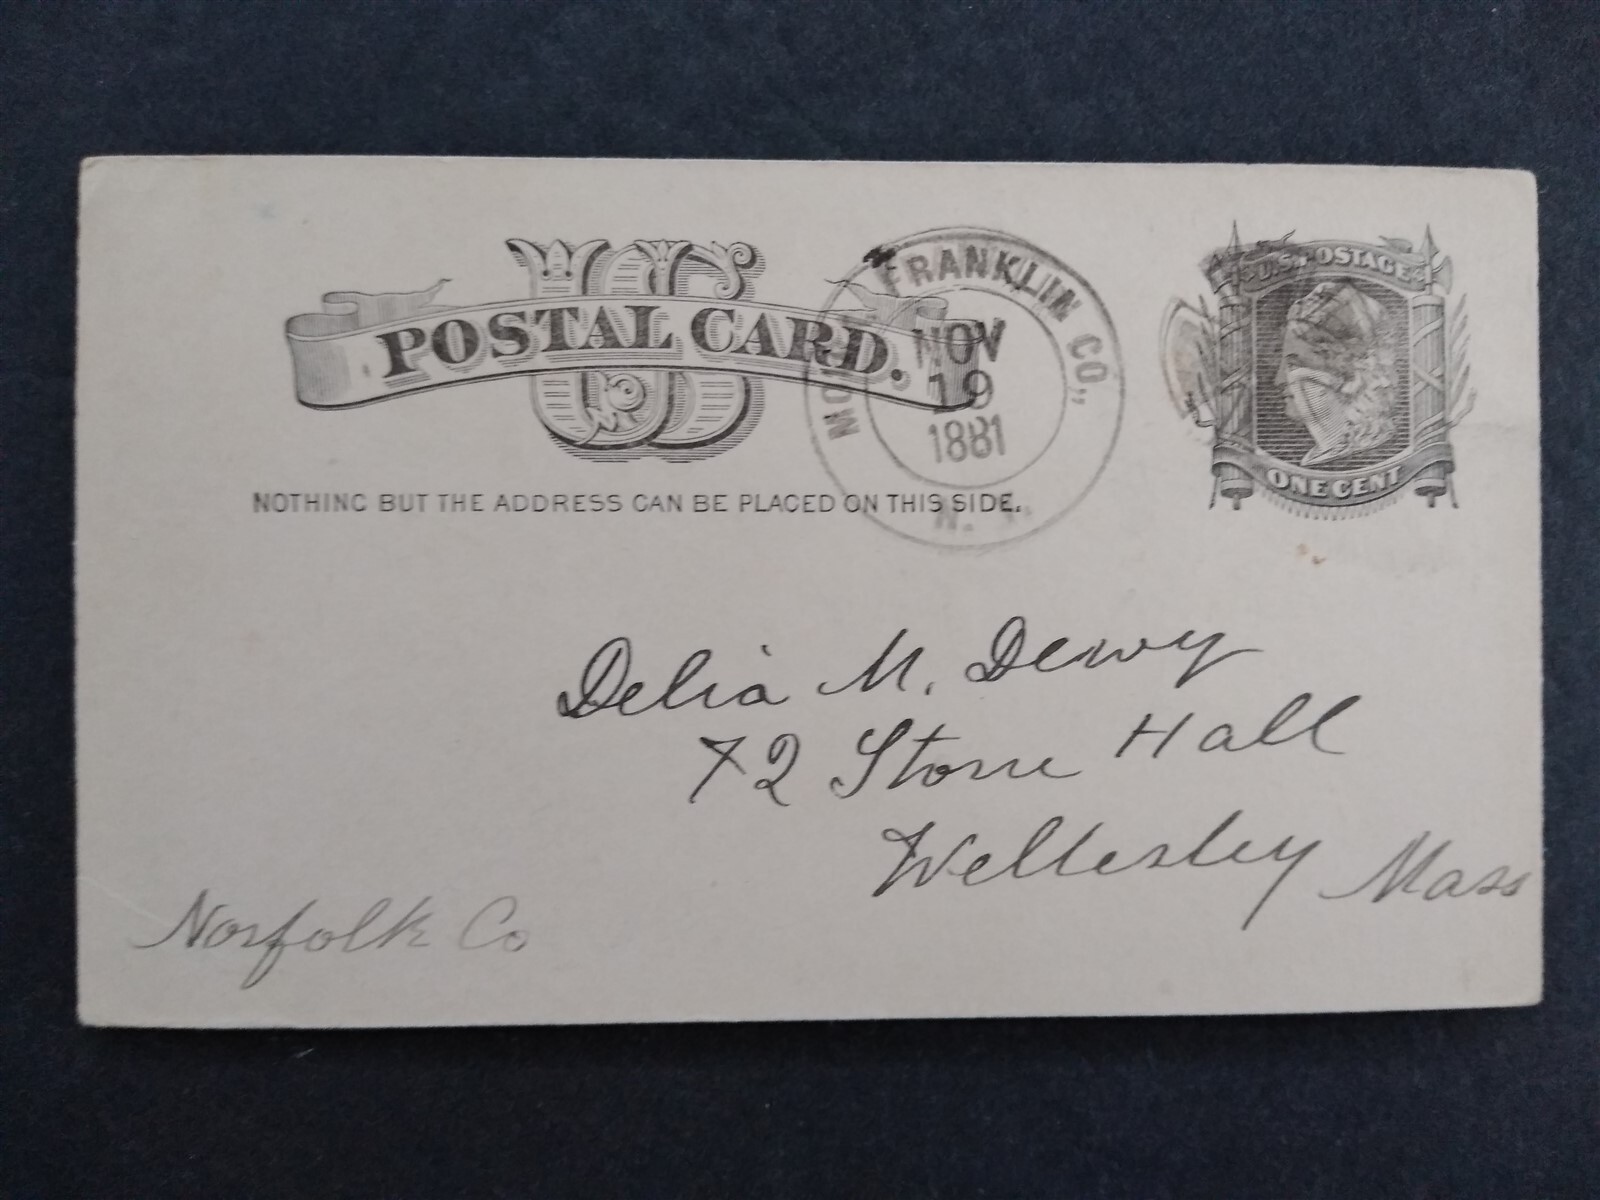 US
POSTAL CARD.
NOTHING BUT THE ADDRESS CAN BE PLACED ON THIS SIDE.
FRANKLIN CO.,
NOV
19
1881
N. Y.
U.S. POSTAGE
ONE CENT
Delia M. Dewy
72 Stone Hall
Wellesley Mass
Norfolk Co